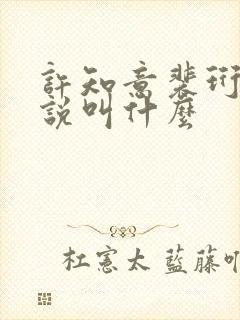 許知意裴珩
說叫什麼
杜憲太 藍藤